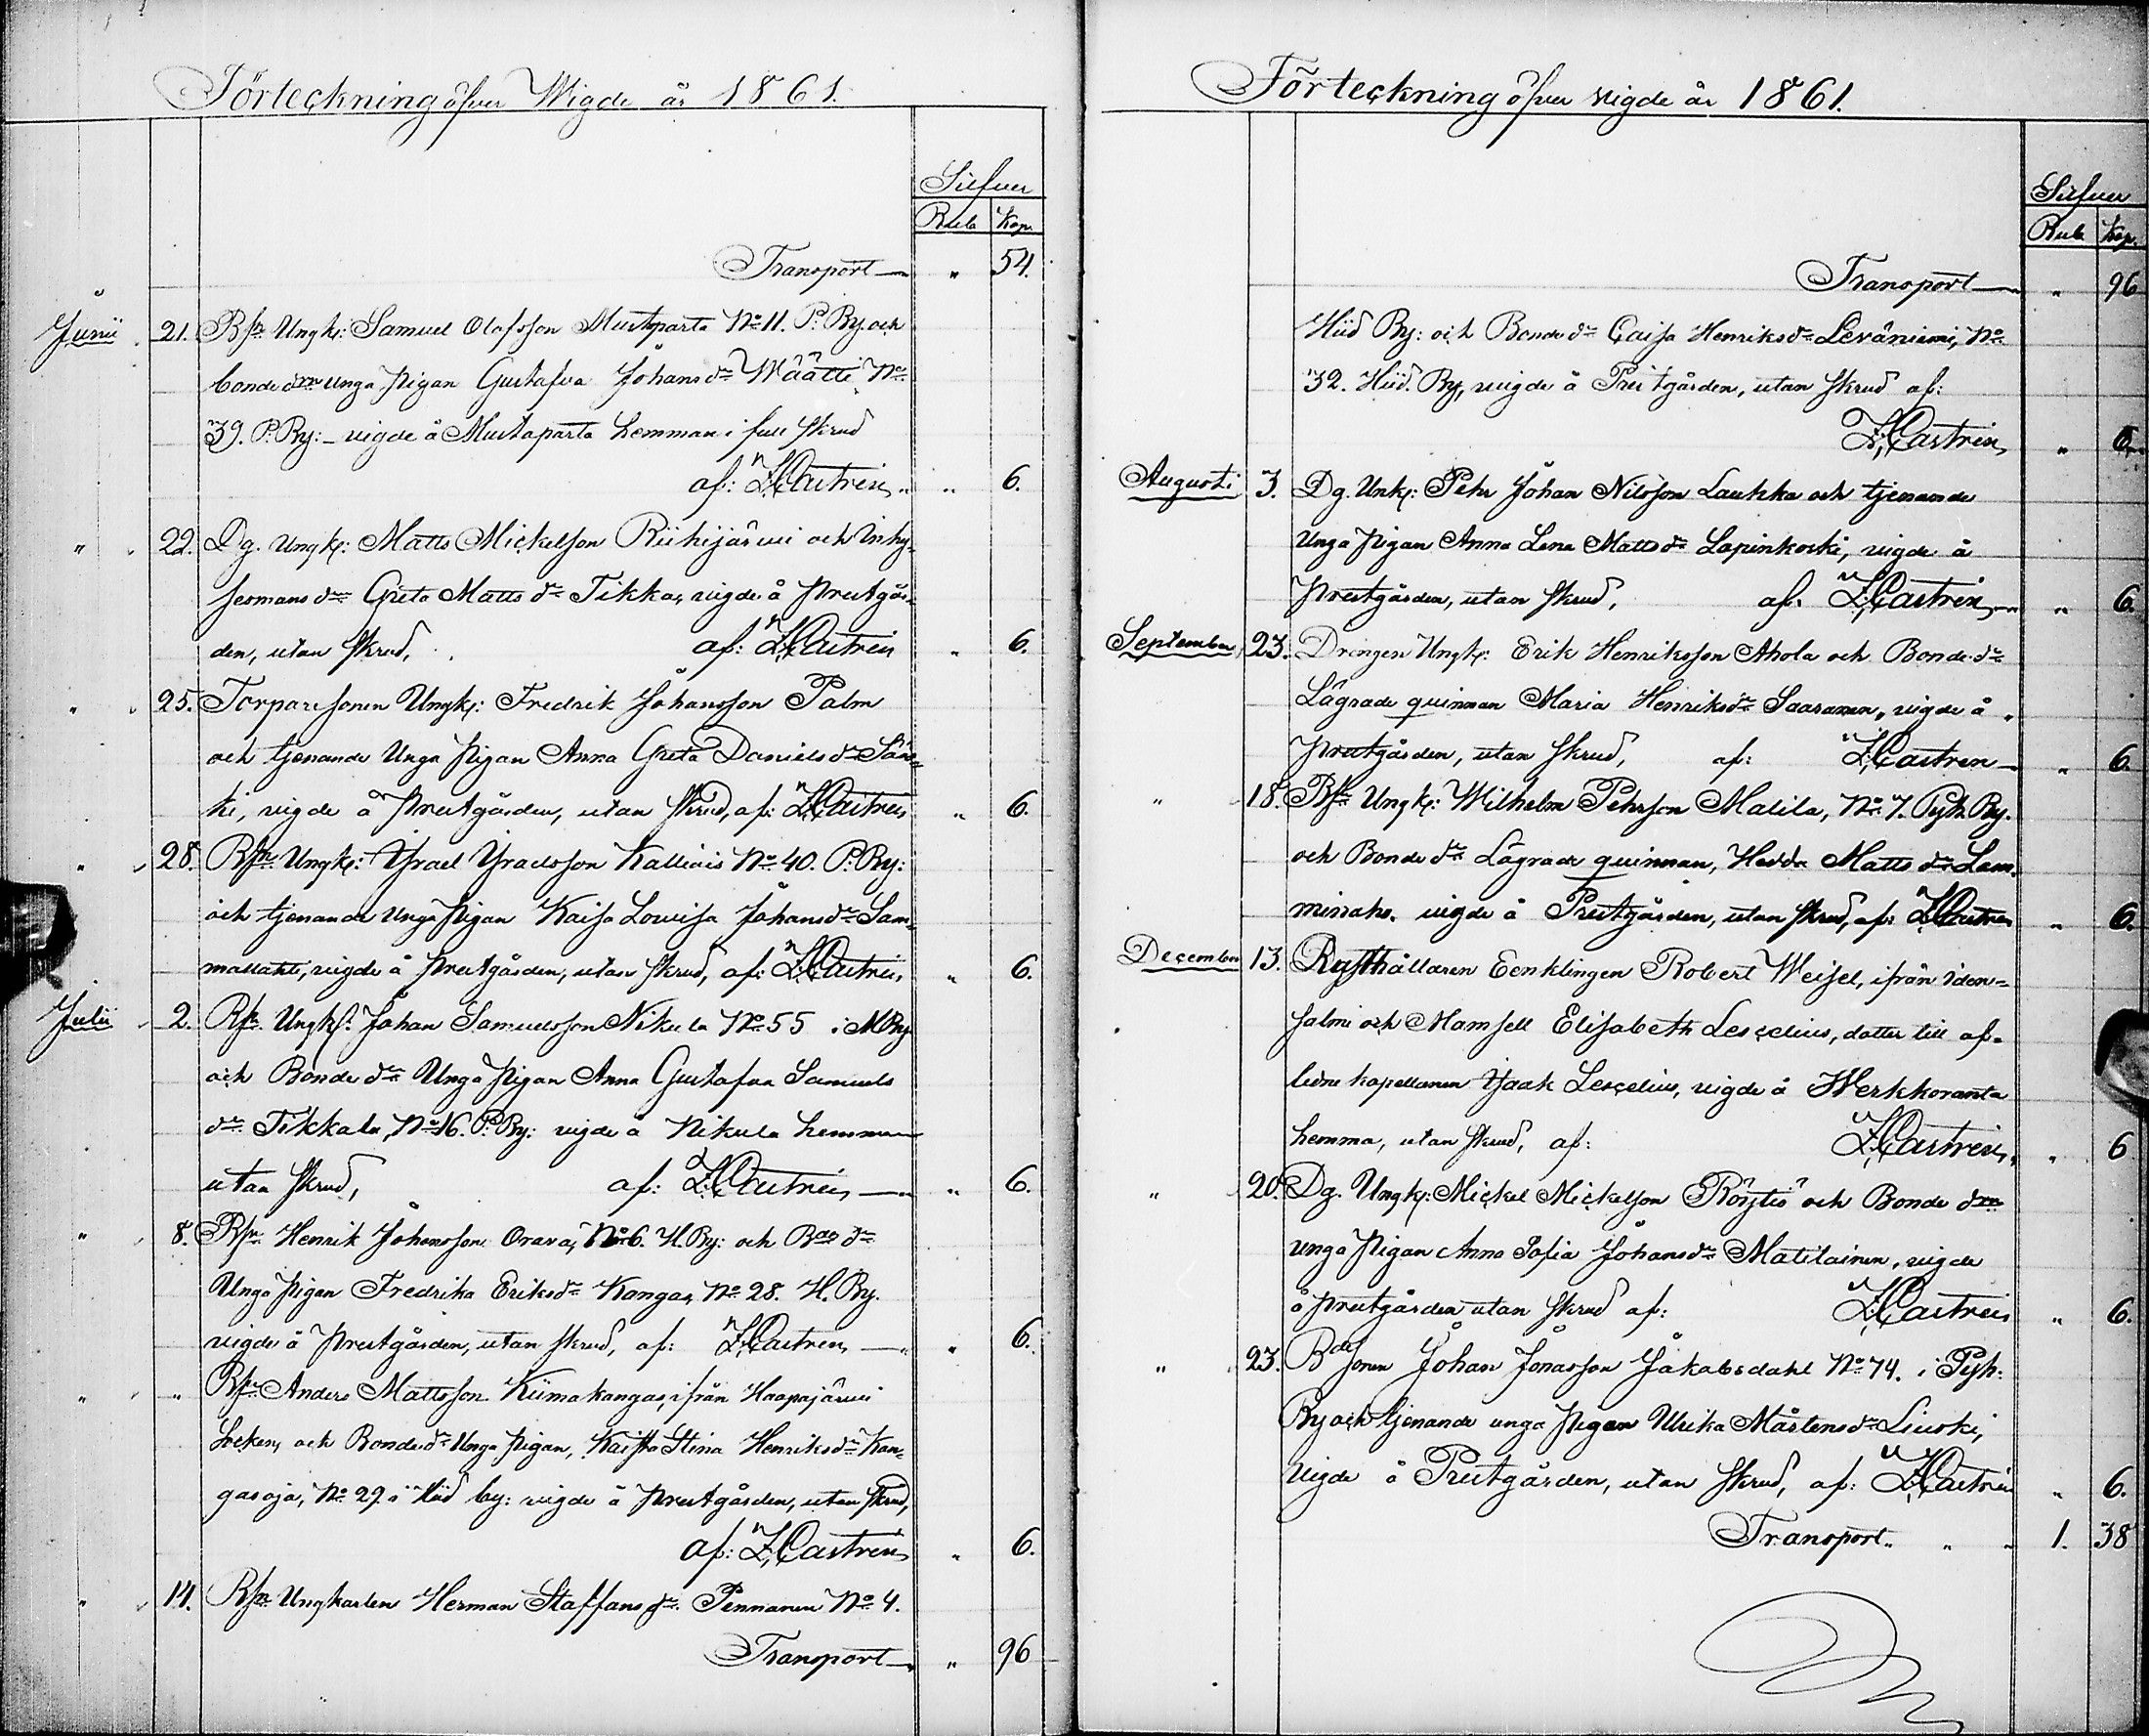 Förteckning öfver Wigde år 1861.
Silfver
Rub Kop.
Transport — " 54.
Junii 21. Bsn Ungk: Samuel Olofsson Mustaparta No 11. P: By. och
bonde dren unga pigan Gustafva Johansdr Wäätti No
39. P: By: – vigde å Mustaparta hemman i full skrud
af: Z: Castrén " 6.
" 22. Dg. Ungk: Matts Mickelsson Riihijärwi och Inhy-
sesmans dr Greta Matts dr Tikka, vigde å prestgår-
den, utan skrud, af: Z: Castrén " 6.
" 25. Torparesonen Ungk: Fredrik Johansson Palm
och tjenande Unga pigan Anna Greta Daniels dr Sär-
ki, vigde å prestgården, utan skrud, af: Z: Castrén " 6.
" 28. Bsn Ungk: Ysrael Ysraelsson Kallinis No 40. P: By:
och tjenande unga pigan Kaisa Lovisa Johansdr Sam-
mallahti, vigde å prestgården, utan skrud, af: Z: Castrén " 6.
Julii 2. Bsn Ungk: Johan Samuelsson Nikula No 55 i M By
och Bonde dr Unga pigan Anna Gustafva Samuels
dr Tikkala, No 16. P: By: vigde å Nikula hemman
utan skrud, af: Z: Castrén — " 6.
" 8. Bsn Henrik Johansson Orava, No 6. H. By: och Bds dr
Unga pigan Fredrika Eriksdr Kangas, No 28. H. By.
vigde å prestgården, utan skrud, af: Z: Castrén — " 6.
" " Bsn Anders Mattsson Kiimakangas, ifrån Haapajärwi
Socken, och Bondedr Unga pigan, Kaisa Stina Henriksdr Kan-
gasoja, No 29. i Hiid by: vigde å prestgården, utan skrud,
af: Z: Castrén " 6.
" 14. Bsn Ungkarlen Herman Staffans Pennanen No 4.
Transport — " 96
Förteckning öfver vigde år 1861.
Silfver
Rub Kop.
Transport — " 96
Hiid By: och Bonde dr Caisa Henriksdr Leväniemi, No
32. Hiid. By, vigde å Prestgården, utan skrud af:
Z: Castrén, " 6.
Augusti 3. Dg. Unk: Pehr Johan Nilsson Laukka och tjenande
Unga pigan Anna Lena Matts dr Lapinkoski, vigde å
prestgården, utan skrud, af: Z: Castrén — " 6.
September 23. Drängen Ungk: Erik Henriksson Ahola och Bonde dr
Lägrade quinnan Maria Henriksdr Saaranen, vigde å
prestgården, utan skrud, af: Z: Castrén — " 6.
" 18. Bsn Ungk: Wilhelm Pehrsson Malila, No 7. Pyh. By.
och Bonde dr Lägrade quinnan, Hedda Matts dr Lam-
minaho. vigde å Prestgården, utan skrud, af: Z: Castrén " 6.
December 13. Rusthållaren Eenklingen Robert Weisel, ifrån Iden-
salmi och Mamsell Elisabeth Lescelius, dotter till af-
lidne kapellanen Ysaak Lescelius, vigde å Werkkoranta
hemma, utan skrud, af: Z: Castrén, " 6
" 20. Dg. Ungk: Mickel Mickelsson Röytiö och Bonde dren
unga pigan Anna Sofia Johansdr Matilainen, vigde
å prestgården utan skrud af: Z: Castrén " 6.
" 23. Bdesonen Johan Jonasson Jakobsdahl No 74. i Pyh:
By och tjenande unga pigan Ulrika Mårtens dr Liuski,
vigde å Prestgården, utan skrud, af: Z: Castrén " 6.
Transport. " " 1. 38